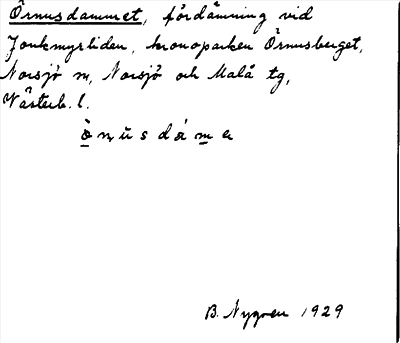 Örnusdammet, fördämning vid
Jonkmyrliden, kronoparken Örnusberget,
Norsjö sn, Norsjö och Malå tg,
Västerb. l.
ò̱ n ŭ s d á m̱ e
B. Nygren 1929